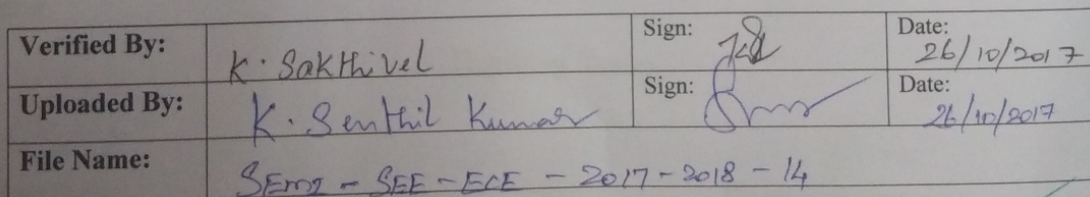 Verified By: K. Sakthivel Sign: Date: 26/10/2017
Uploaded By: K. Senthil Kumar Sign: Date: 26/10/2017
File Name: SEM2 - SEE - ECE - 2017 - 2018 - 14